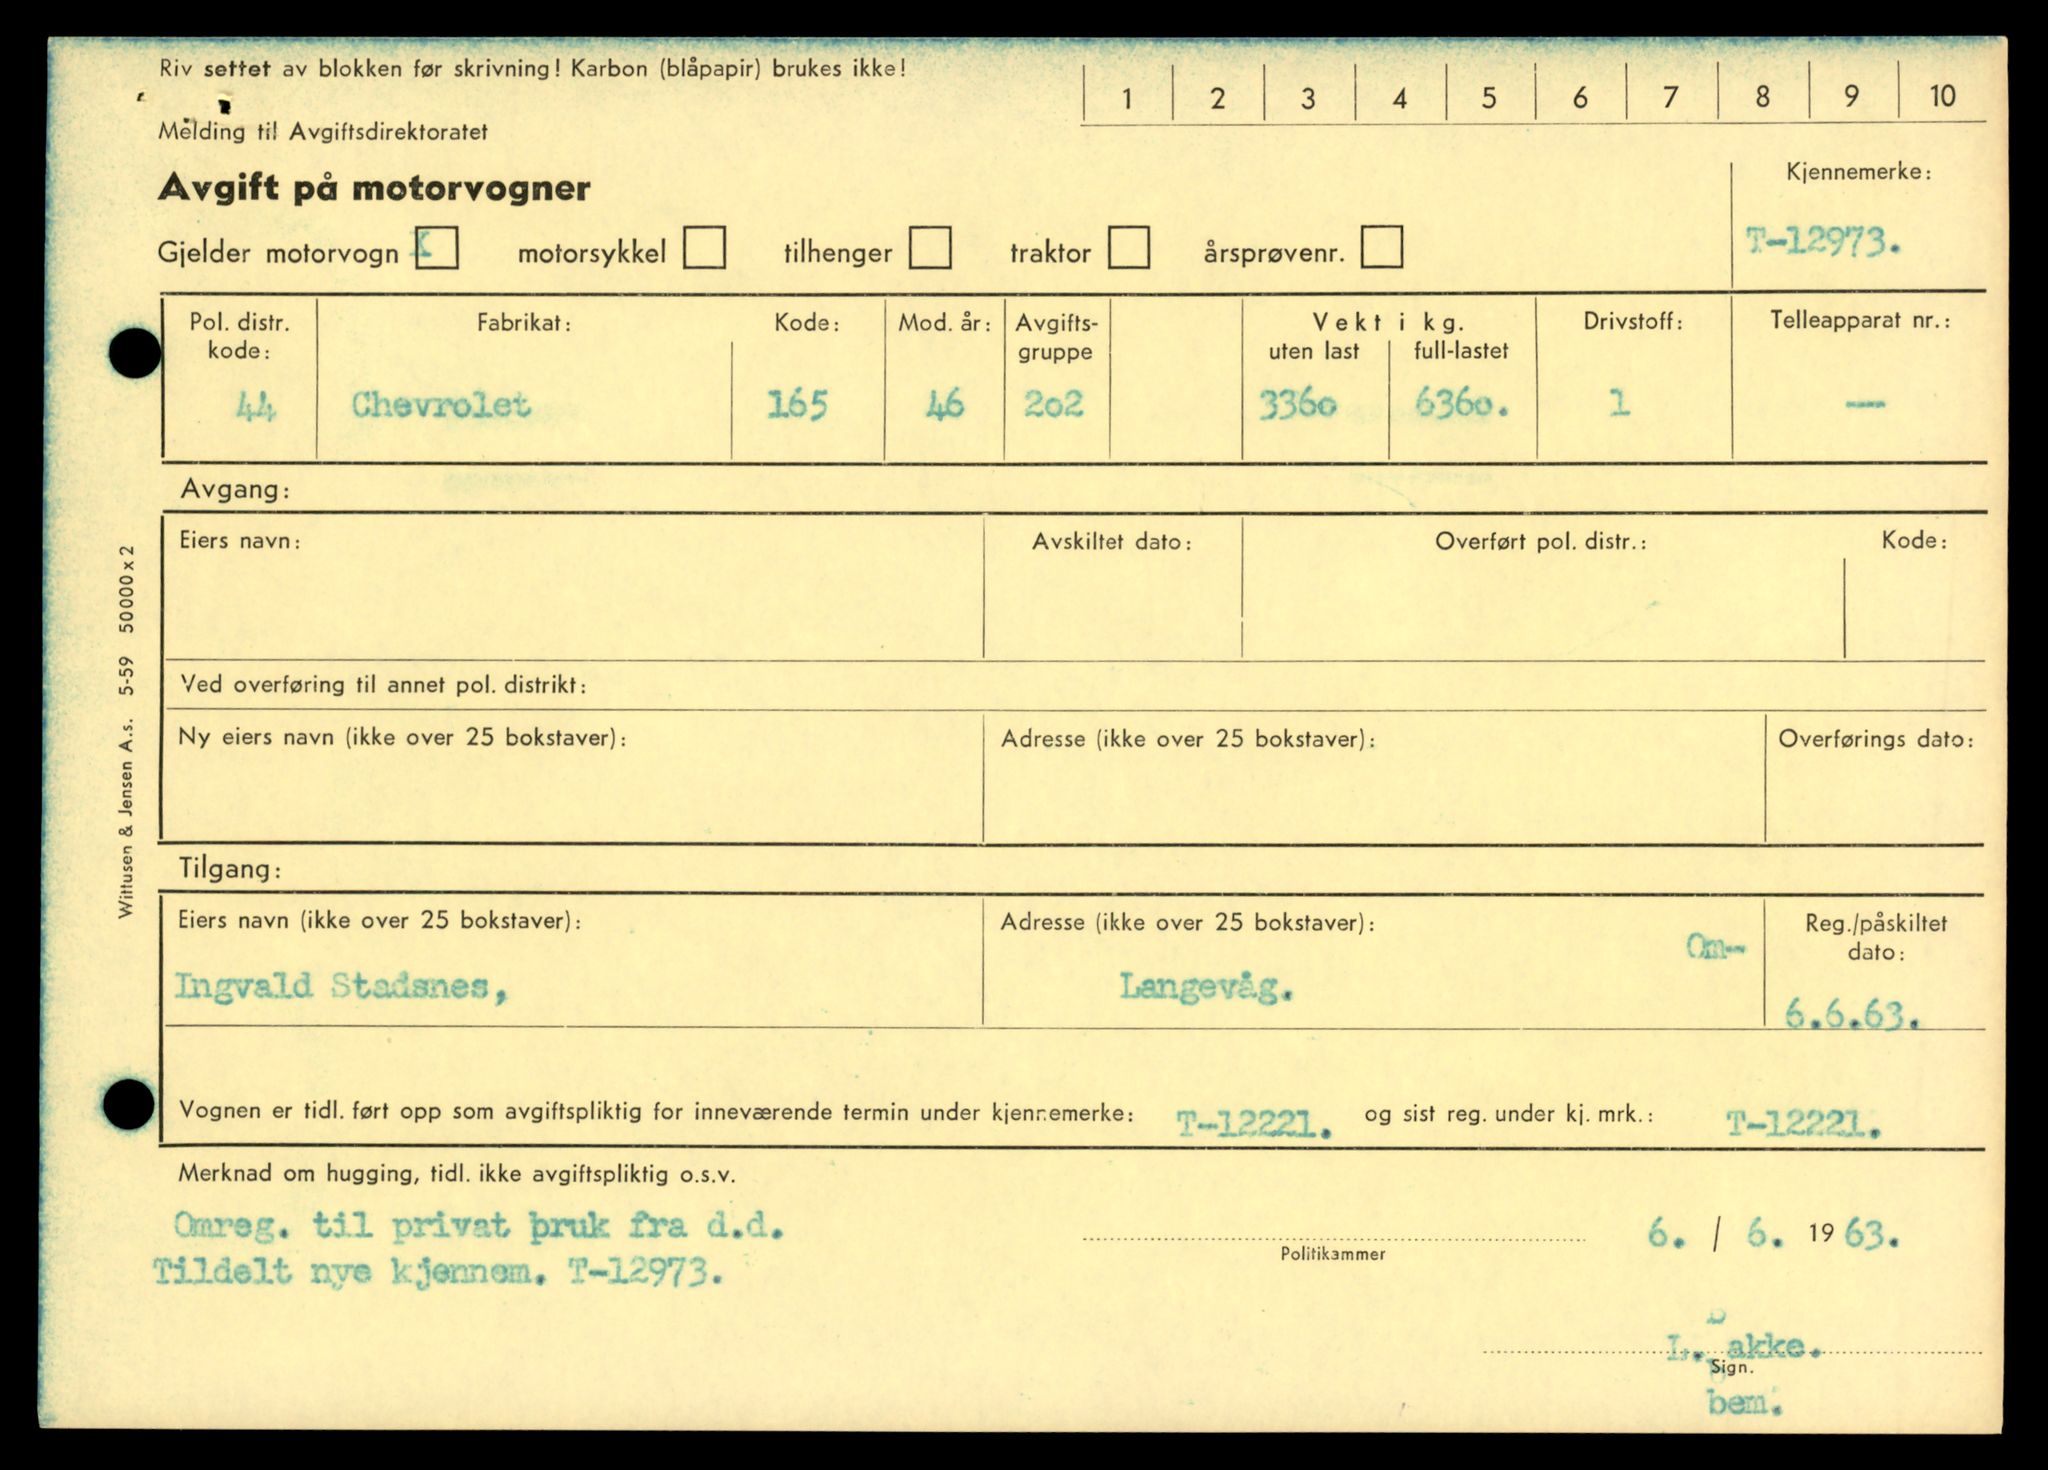 Riv settet av blokken før skrivning! Karbon (blåpapir) brukes ikke!
1 2 3 4 5 6 7 8 9 10
Melding til Avgiftsdirektoratet
Avgift på motorvogner
Kjennemerke:
T-12973.
Gjelder motorvogn X motorsykkel tilhenger traktor årsprøvenr.
Pol. distr. kode: Fabrikat: Kode: Mod. år: Avgifts-gruppe Vekt i kg. uten last full-lastet Drivstoff: Telleapparat nr.:
44 Chevrolet 165 46 202 3360 6360. 1 —
Avgang:
Eiers navn: Avskiltet dato: Overført pol. distr.: Kode:
Ved overføring til annet pol. distrikt:
Ny eiers navn (ikke over 25 bokstaver): Adresse (ikke over 25 bokstaver): Overførings dato:
Tilgang:
Eiers navn (ikke over 25 bokstaver): Adresse (ikke over 25 bokstaver): Reg./påskiltet dato:
Om-
Ingvald Stadsnes, Langevåg. 6.6.63.
Vognen er tidl. ført opp som avgiftspliktig for inneværende termin under kjennemerke: T-12221. og sist reg. under kj. mrk.: T-12221.
Merknad om hugging, tidl. ikke avgiftspliktig o.s.v.
Omreg. til privat bruk fra d.d.
Tildelt nye kjennem. T-12973.
Politikammer
6. / 6. 1963.
L. Bakke.
Sign.
bem.
Wittusen & Jensen A.s. 5-59 50000 x 2